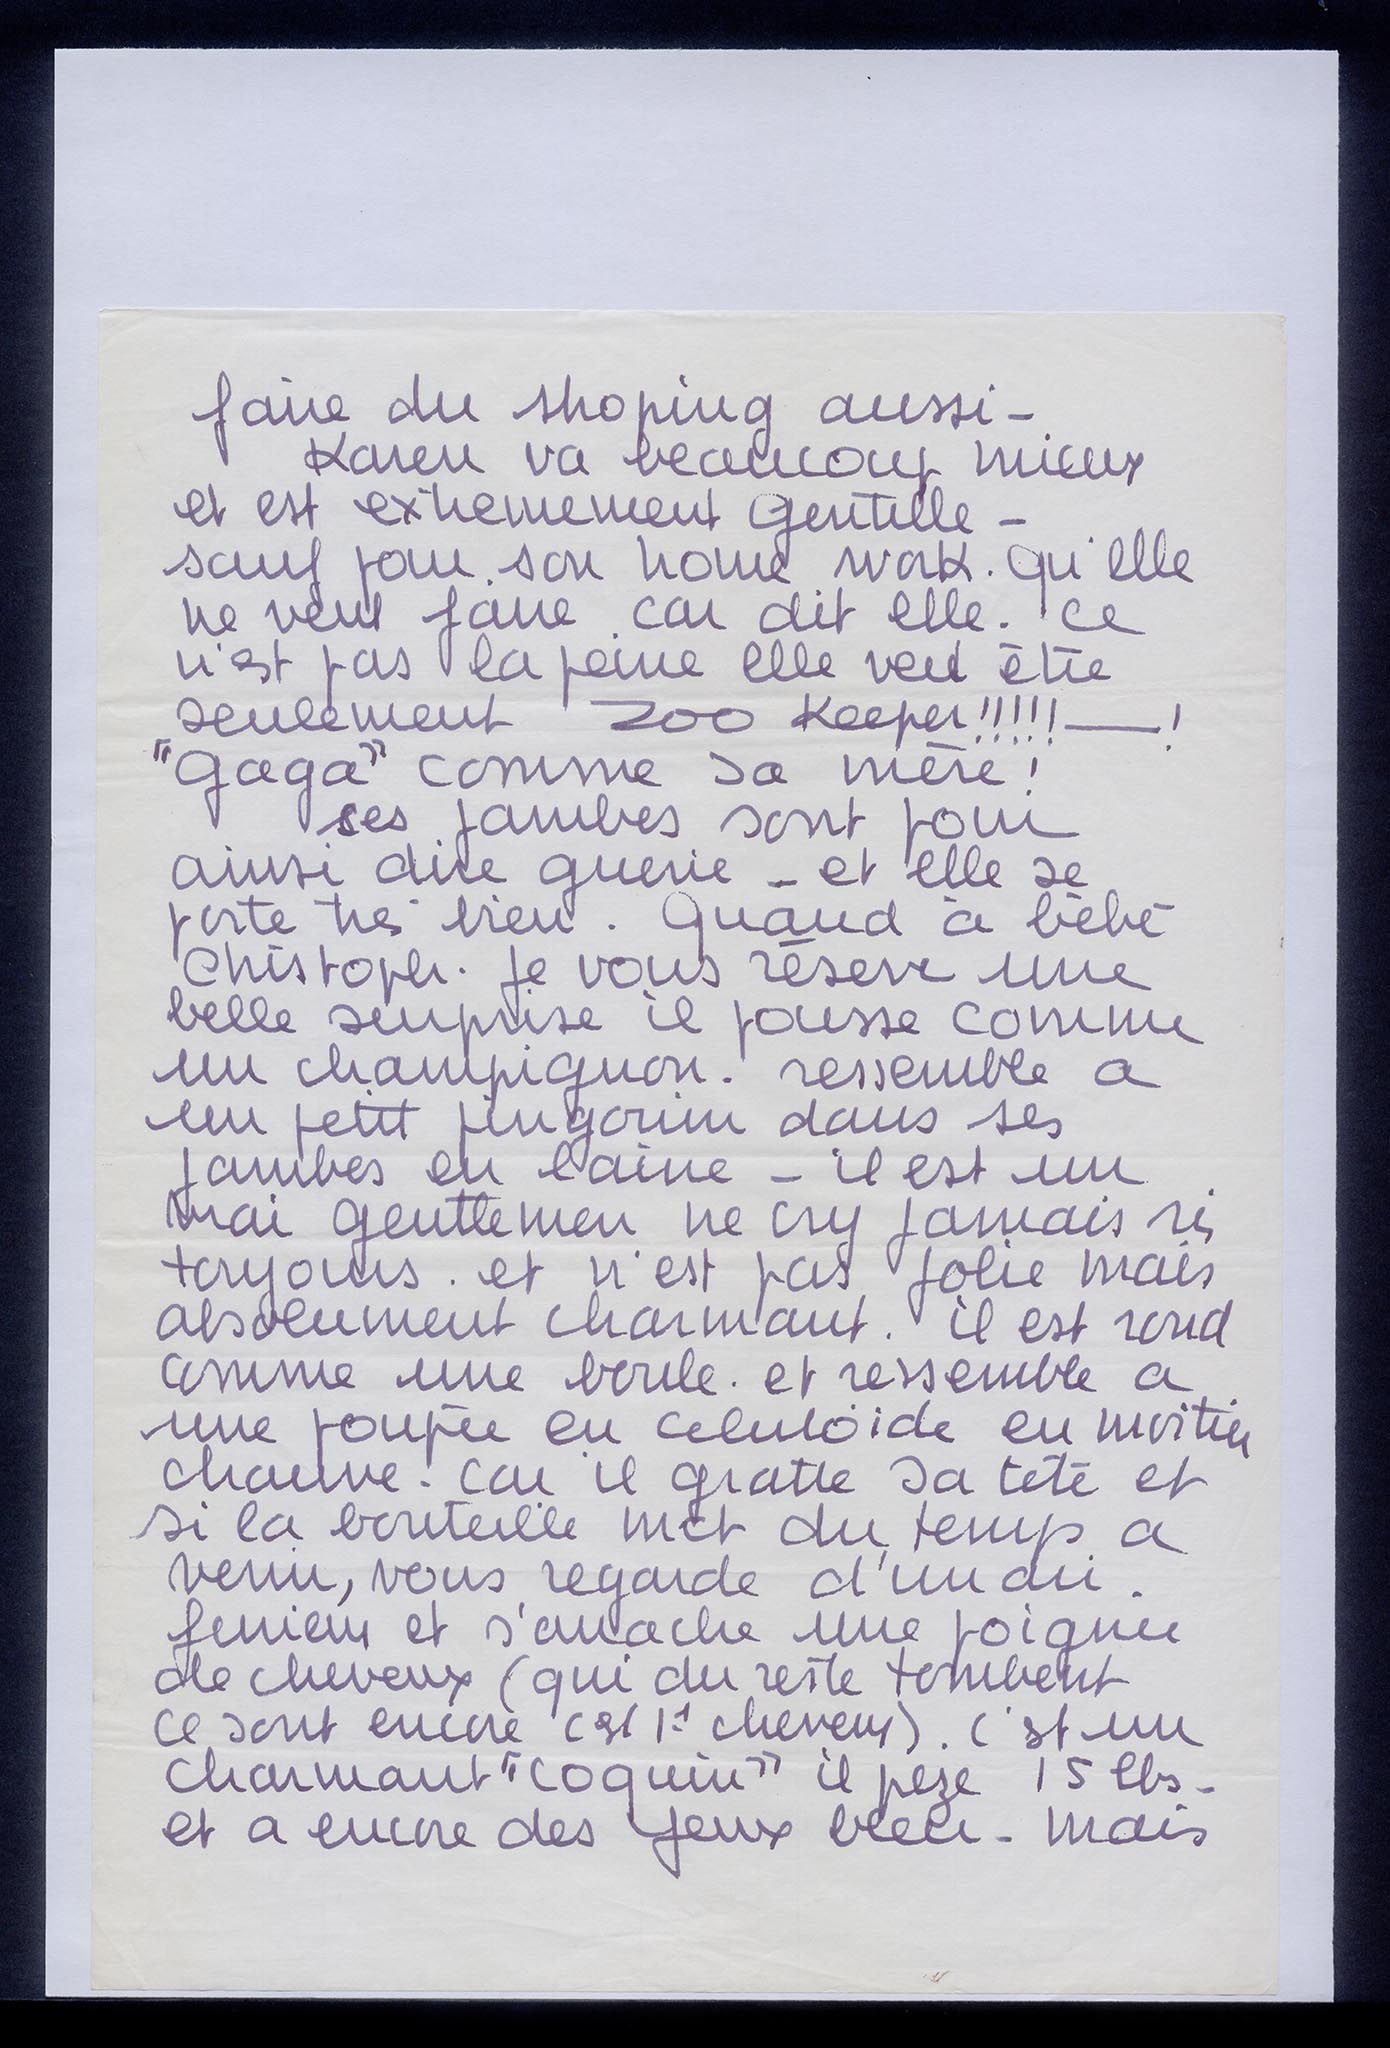 faire du shoping aussi -
Karen va beaucoup mieux
et est extremement gentille -
sauf pour son home work. qu'elle
ne veut faire car dit elle. ce
n'est pas la peine elle veut être
seulement zoo Keeper!!!!! — !
"gaga" comme sa mère!
ses jambes sont pour
ainsi dire guerie - et elle se
porte très bien. Quand à bébé
Christoph. je vous réserve une
belle surprise il pousse comme
un champignon. ressemble a
un petit pingouin dans ses
jambes en laine - il est un
vrai gentlemen ne cry jamais ris
toujours. et n'est pas jolie mais
absolument charmant. il est rond
comme une boule. et ressemble a
une poupée en celuloide en moitié
chauve. car il gratte sa tête et
si la bouteille met du temp a
venir, vous regarde d'un air.
furieux et s'arrache une poignée
de cheveux (qui du reste tombent
ce sont encore ces 1rs cheveux). c'est un
charmant "coquin" il peze 15 lbs -
et a encore des yeux bleu - mais